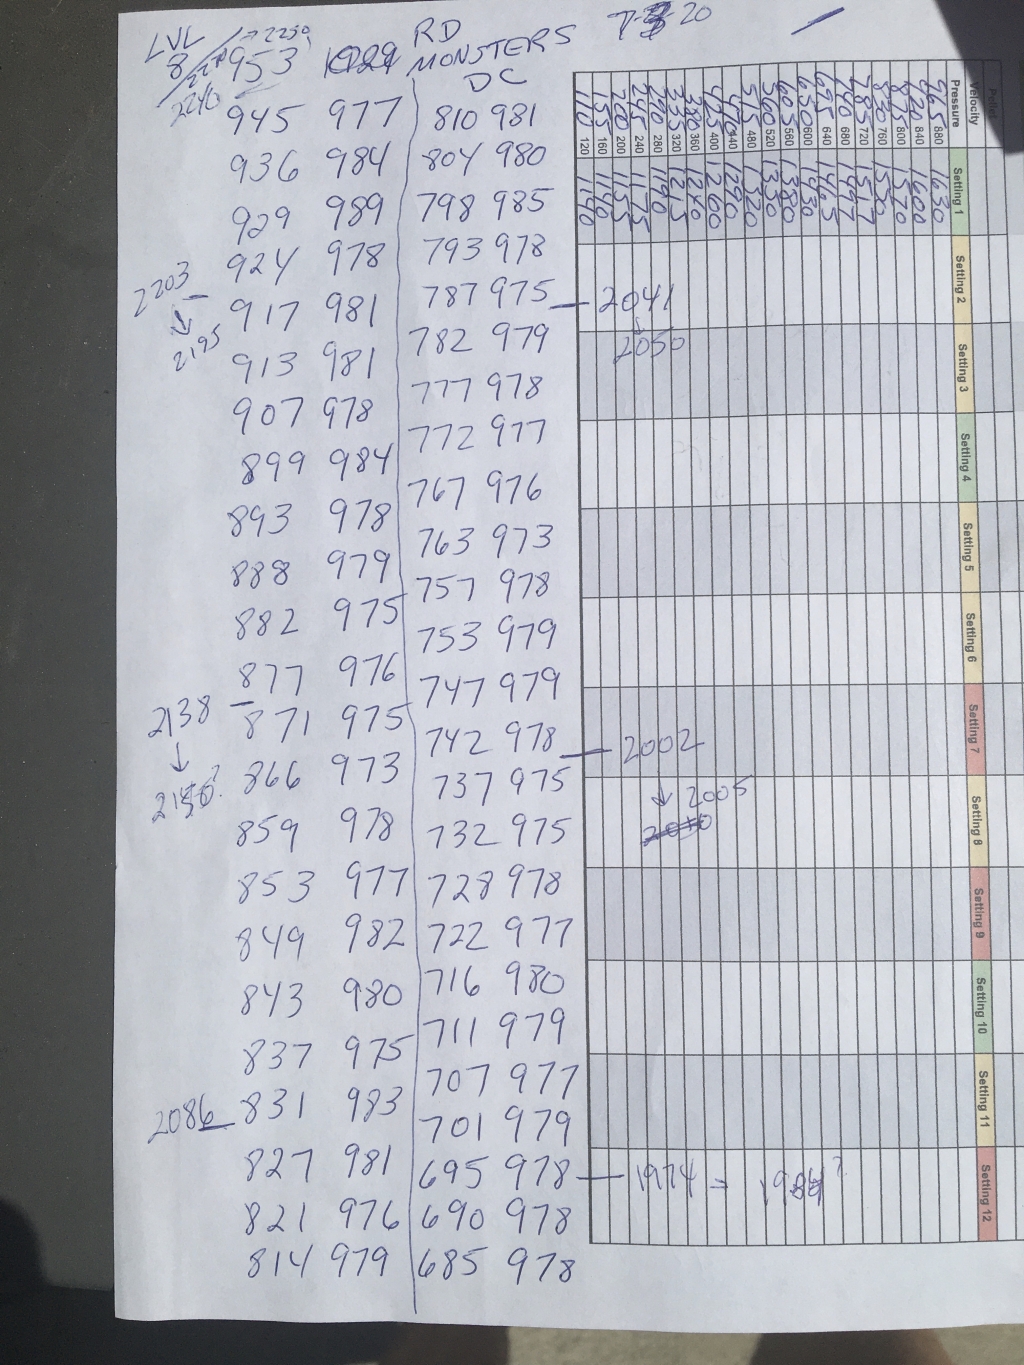 LVL RD 7-3-20
8 953 MONSTERS
2240 DC
945 977 810 981
936 984 804 980
929 989 798 985
924 978 793 978
2203 917 981 787 975 — 2041
2195 913 981 782 979 2050
907 978 777 978
899 984 772 977
893 978 767 976
888 979 763 973
882 975 757 978
877 976 753 979
2138 — 871 975 747 979
866 973 742 978 — 2002
859 978 737 975 2005
853 977 732 975
849 982 728 978
843 980 722 977
837 975 716 980
2086 — 831 983 711 979
827 981 707 977
821 976 701 979
814 979 695 978 — 1974 =
690 978
685 978
Velocity
Pressure Setting 1 Setting 2 Setting 3 Setting 4 Setting 5 Setting 6 Setting 7 Setting 8 Setting 9 Setting 10 Setting 11 Setting 12
965 880 1630
920 840 1600
875 800 1570
830 760 1550
785 720 1517
740 680 1497
695 640 1465
650 600 1430
605 560 1380
560 520 1350
515 480 1320
470 440 1290
425 400 1260
380 360 1240
335 320 1215
290 280 1190
245 240 1175
200 200 1155
155 160 1140
110 120 1140